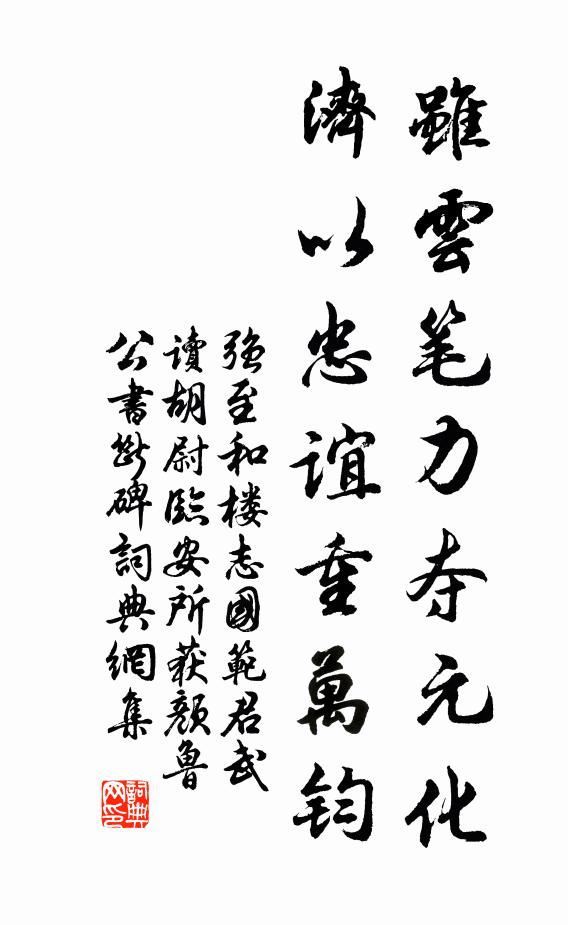 雖雲笔力夺元化
濟以忠誼重萬鈞
強至和楼志國範君武
讀胡尉臨安所获顏魯
公書斷碑詞典網集
詞典网印